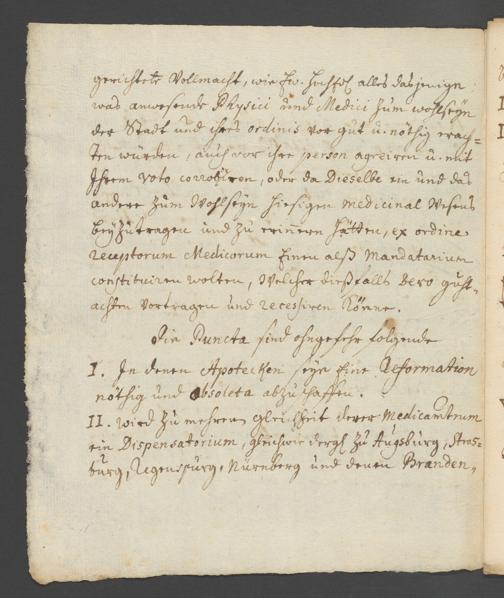 gerichtete Vollmacht, wie Ew. Hochfl. alles dasjenige
was anwesende Physici und Medici zum wohlseyn
der Stadt und ihres ordinis vor gut u. nöthig erach=
ten würden, auch vor ihre person agreiren u. mit
Ihrem voto corroboriren, oder da Dieselbe ein und das
andere zum Wohlseyn hiesigen Medicinal Wesens
beyzutragen und zu erinnern hätten, ex ordine
receptorum Medicorum Einen alß Mandatarium
constituiren wolten, Welcher dießfalls Dero gut=
achten vortragen und recessiren Könne.
Die Puncta sind ohngefehr folgende
I. In denen Apotecken seye Eine Reformation
nöthig und absoleta abzuschaffen.
II. wird zu mehrern gleichheit derer Medicamentnum
ein Dispensatorium, gleichwie dergl. zu Augsburg, Stras=
burg, Regenspurg, Nürnberg und denen Branden=